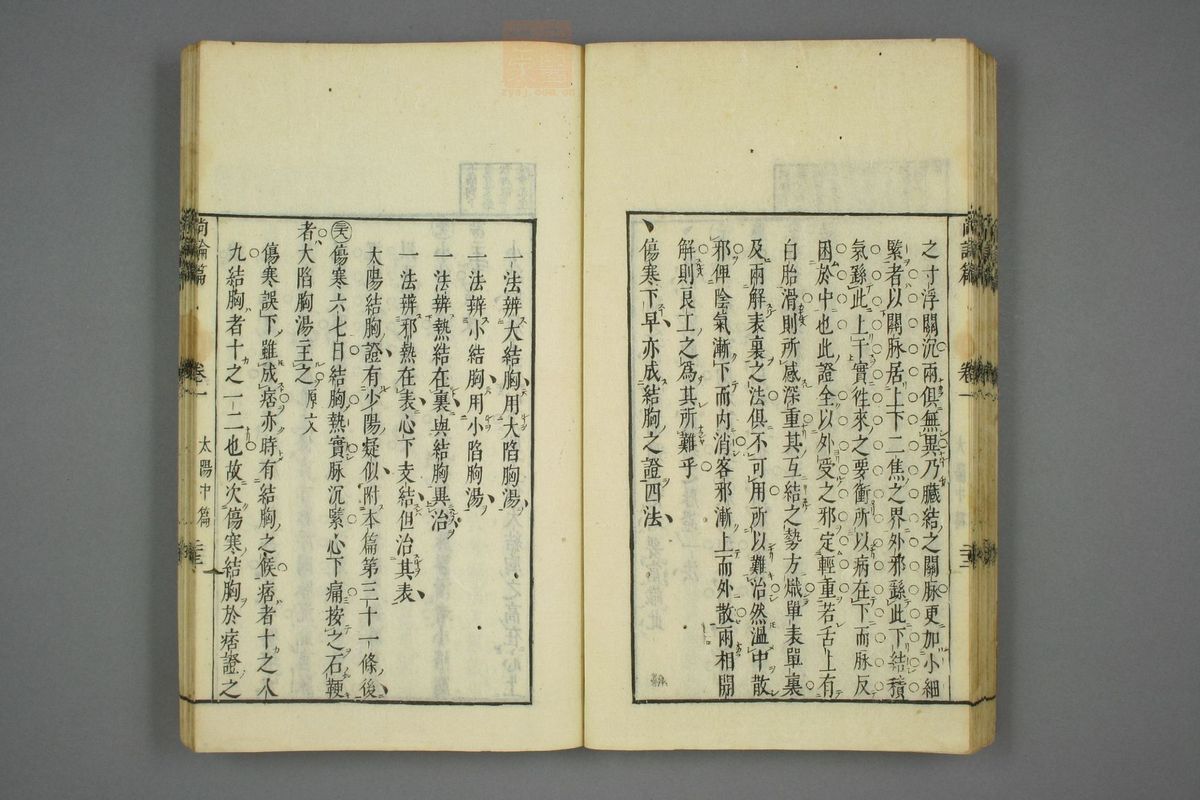 之寸浮關沉兩俱無異乃臟結之關脉更加小細
緊者以關脉居上下二焦之界外邪繇此下結積
氣繇此上干實徃來之要衝所以病在下而脉反
困於中也此證全以外受之邪定輕重若舌上有
白胎滑則所感深重其互結之勢方熾單表單裏
及兩解表裏之法俱不可用所以難治然溫中散
邪俾陰氣漸下而内消客邪漸上而外散兩相開
解則良工之爲其所難乎
傷寒下早亦成結胸之證四法
一法辨大結胸用大陷胸湯
一法辨小結胸用小陷胸湯
一法辨熱結在裏與結胸異治
一法辨邪熱在表心下支結但治其表
太陽結胸證有少陽疑似附本篇第三十一條後
傷寒六七日結胸熱實脉沉緊心下痛按之石鞕
者大陷胸湯主之原文
傷寒誤下雖成痞亦時有結胸之候痞者十之八
九結胸者十之一二也故次傷寒結胸於痞證之
尚論篇
卷一
太陽中篇